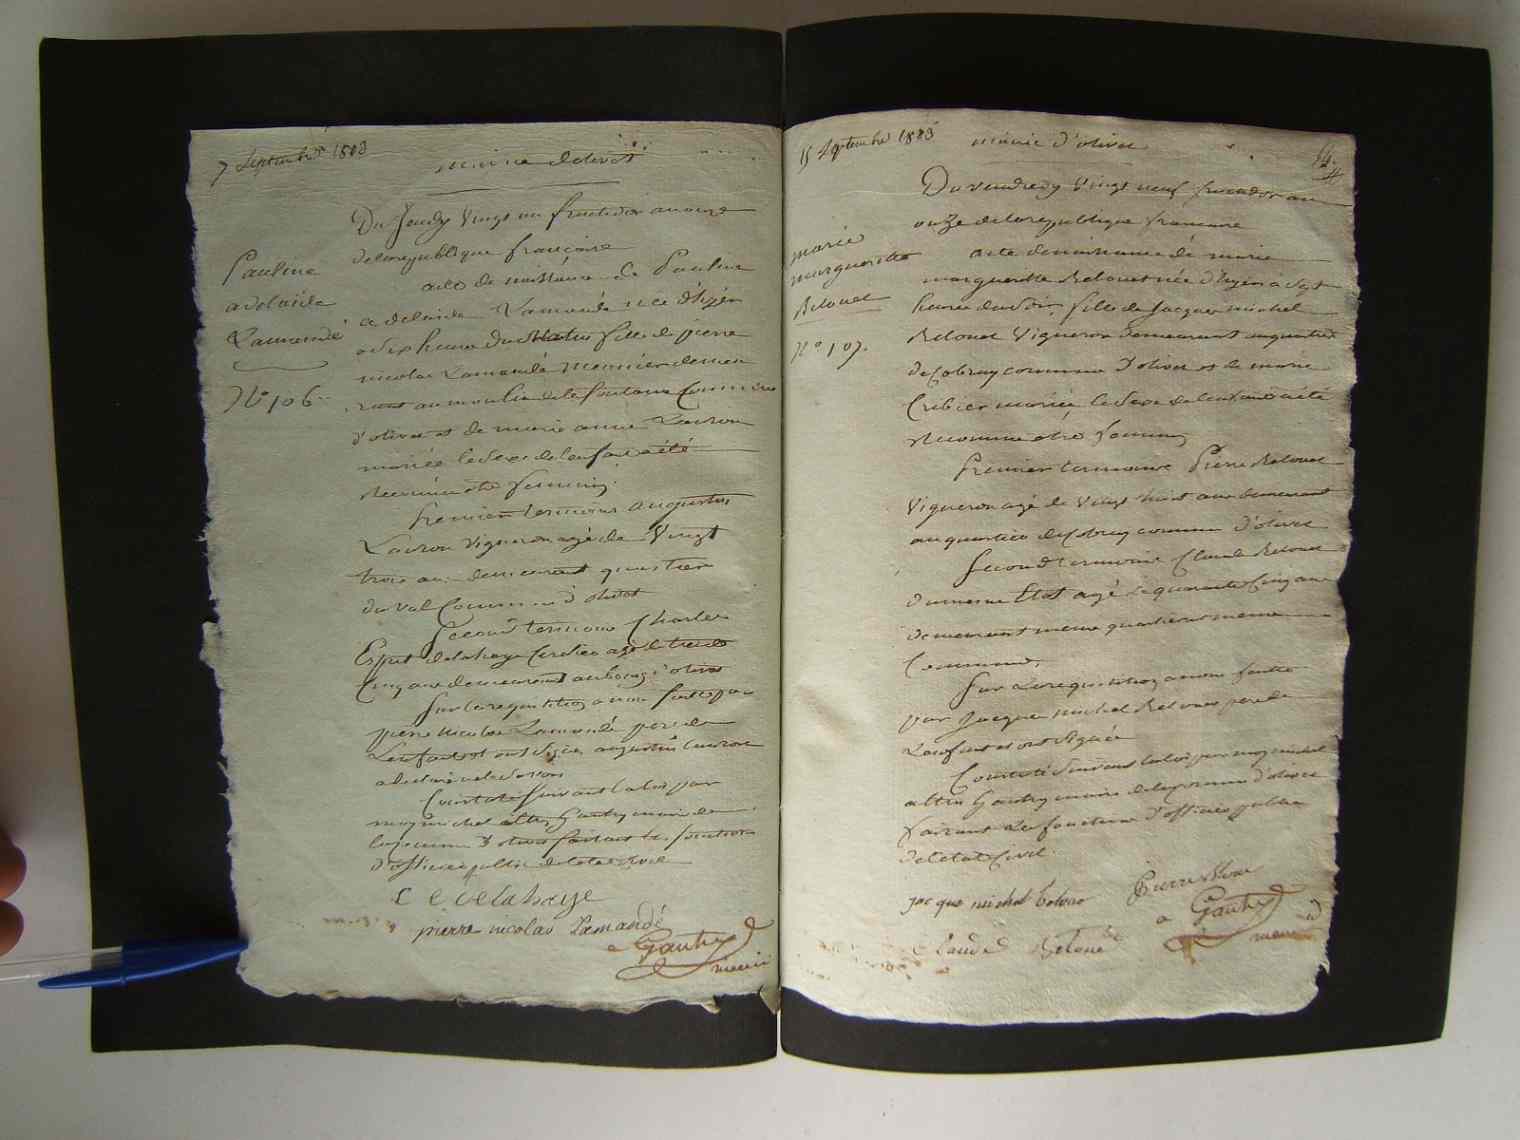 7 Septembre 1803
mairie d'olivet
Du Jeudy Vingt un fructidor an onze
de la republique françaire
Pauline
adelaide
Lamandé
N° 106
acte de naissance de Pauline
adelaide Lamandé née d'hyer
a dix heure du Matin fille de pierre
nicolas Lamandé Meunier demeu
rant au moulin de la fontaine Commune
d'olivet et de marie anne Lauron
mariée le Sexe de lenfant a été
reconnu etre feminin
Premier temoins augustin
Lauron Vigneron agé de Vingt
trois ans demeurant quartier
du Val Commune d'olivet
Second temoins Charles
Esprit delahaye agé de trente
Cinq ans demeurant au bourg d'olivet
Sur la requisition a nous faitte par
pierre Nicolas Lamandé pere de
Lenfant et ont Signé augustin Lauron
a declaré ne le Savoir
Constaté Suivant la loi par
moy michel altin Gautry maire de
la commune d'olivet faisant les fonctions
d'officier public de letat Civil
C E delahaye
pierre nicolas Lamandé
Gautry
maire
15 Septembre 1803
mairie d'olivet
Du vendredy Vingt neuf fructidor an
onze de la republique francaise
marie
margueritte
Relouet
N° 107.
acte de naissance de marie
margueritte Relouet née d'hyer a Sept
heure du Soir, fille de Jacque michel
Relouet Vigneron demeurant au quartier
de Cobray commune d'olivet et de marie
Cribier mariée, le Sexe de lenfant a été
reconnu etre feminin
Premier temoins Pierre Relouet
Vigneron agé de Vingt huit ans demeurant
au quartier de Cobray commune d'olivet
Second temoins Claude Relouet
du meme Etat agé de quarante Cinq ans
demeurant meme quartier et meme
Commune,
Sur La requisition a nous faitte
par Jacque michel Relouet pere de
Lenfant et ont Signée
Constaté Suivant la loi par moy michel
altin Gautry maire de la commune d'olivet
faisant Les fonctions d'officier public
de letat Civil.
jacque michel
Pierre
Claude
Gautry
maire